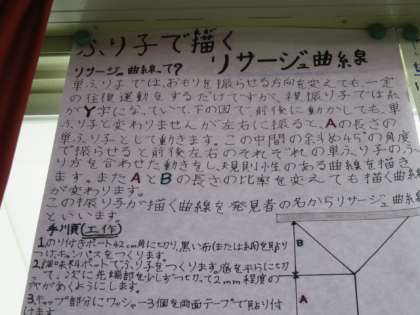 ふり子で描く
リサージュ曲線
リサージュ曲線って?
単ふり子では、おもりを振らせる方向を変えても、一定
の往復運動をするだけですが、複振り子では糸
がY字になっていて、下の図で前後に動かしても単
ふり子と変わりませんが左右に振ると、Aの長さの
単ふり子として動きます。この中間の斜め45°の角度
で振らせると前後左右のそれぞれの単ふり子のふ
り方を合わせた動きをし、規則性のある曲線を描き
ます。またAとBの長さの比率を変えても描く曲線
が変わります。
この振り子が描く曲線を発見者の名からリサージュ曲線
といいます。
手順(工作)
1.のり付きボード42cm角に切り、黒い布(または紙)を貼り
つけキャンバスをつくります。
って、次に先端部を少しずつ切って2mm程度の
穴があくようにします。
3.キャップ部分にワッシャー3個を両面テープで貼り付
けます。
B
A